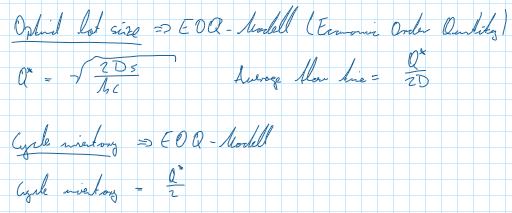 Optimal lot size => EOQ-Modell (Economic Order Quantity)
Q* = √(2DS / hC) Average flow time = Q* / 2D
Cycle inventory => EOQ-Modell
Cycle inventory = Q* / 2